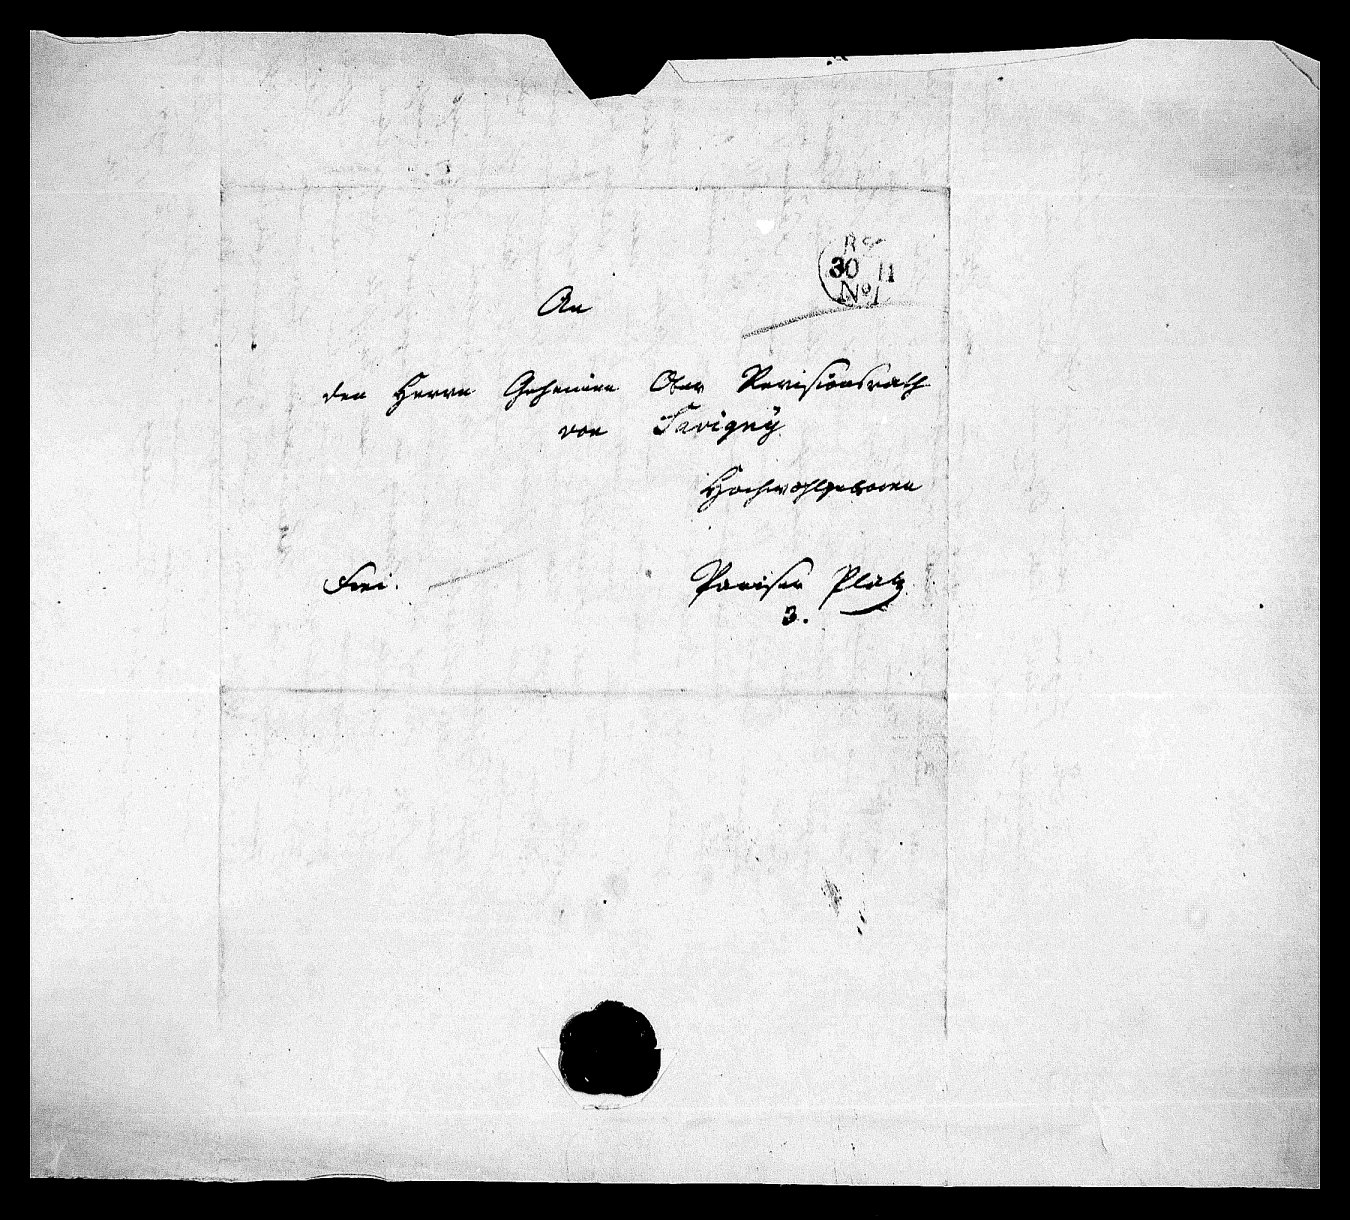 30 11
No 1
An
den Herrn Geheimen Ober Revisionsrath
von Savigny
Hochwohlgeboren
Frei.
Pariser Platz
3.